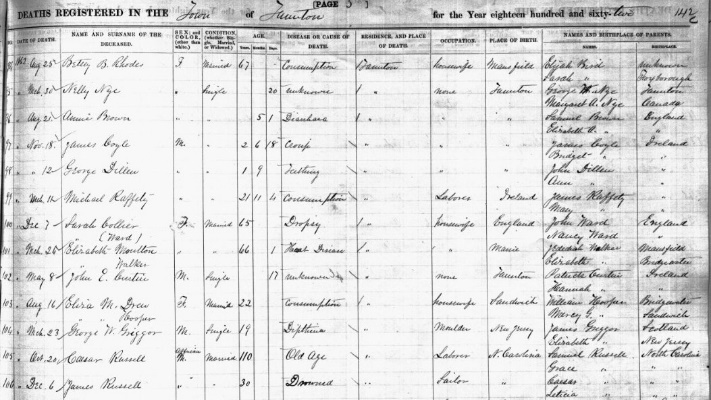 [PAGE 3 ]
DEATHS REGISTERED IN THE Town of Taunton for the Year eighteen hundred and sixty-two 142
DATE OF DEATH. NAME AND SURNAME OF THE DECEASED. SEX; and COLOR, (other than white.) CONDITION, (Whether Single, Married, or Widowed.) AGE. Years. Months. Days. DISEASE OR CAUSE OF DEATH. RESIDENCE, AND PLACE OF DEATH. OCCUPATION. PLACE OF BIRTH. NAMES AND BIRTHPLACE OF PARENTS. NAMES. BIRTHPLACE.
1862 Aug 25 Betsey B. Rhodes F Married 67 - Consumption Taunton housewife Mansfield Elijah Bird unknown
Sarah " Foxborough
" Mch. 30 Nelly Nye " Single 20 unknown " none Taunton George W. Nye Taunton
Margaret A. Nye Canada
" Aug 21 Annie Brown " " 5 1 Diarrhaea " " " Samuel Brown England
Elizabeth A. " "
97 " Nov. 18 James Coyle M. " 2 6 18 Croup " " " James Coyle Ireland
Bridget " "
98 " " 12 George Dillen " " 1 9 Teething " " " John Dillen "
Ann " "
99 " Mch. 12 Michael Raffety " " 21 11 4 Consumption " Laborer Ireland James Raffety "
Mary " "
100 " Dec. 7 Sarah Collier F. Married 65 Dropsy " housewife England John Ward England
(Ward) Nancy Ward "
101 " Mch. 25 Elizabeth Moulton " " 66 1 Heart Disease " " Maine Jedediah Walker Mansfield
" Walker Elizabeth " Bridgwater
102 " May 8 John E. Curtin M. Single 17 unknown " none Taunton Patrick Curtin Ireland
Hannah " "
103 " Aug 16 Eliza M. Drew F. Married 22 Consumption " housewife Sandwich William Hooper Bridgwater
" Hooper Marcy G. " Sandwich
104 " Mch. 23 George W. Griggor M. Single 19 Diptheria " Moulder New Jersey James Griggor Scotland
Elizabeth " New Jersey
105 " Oct. 20 Caesar Russell African M. Married 110 Old Age " Laborer N. Carolina Samuel Russell North Carolina
Grace " "
106 " Dec. 6 James Russell " " 30 Drowned " Sailor " Caesar " "
Leticia " "